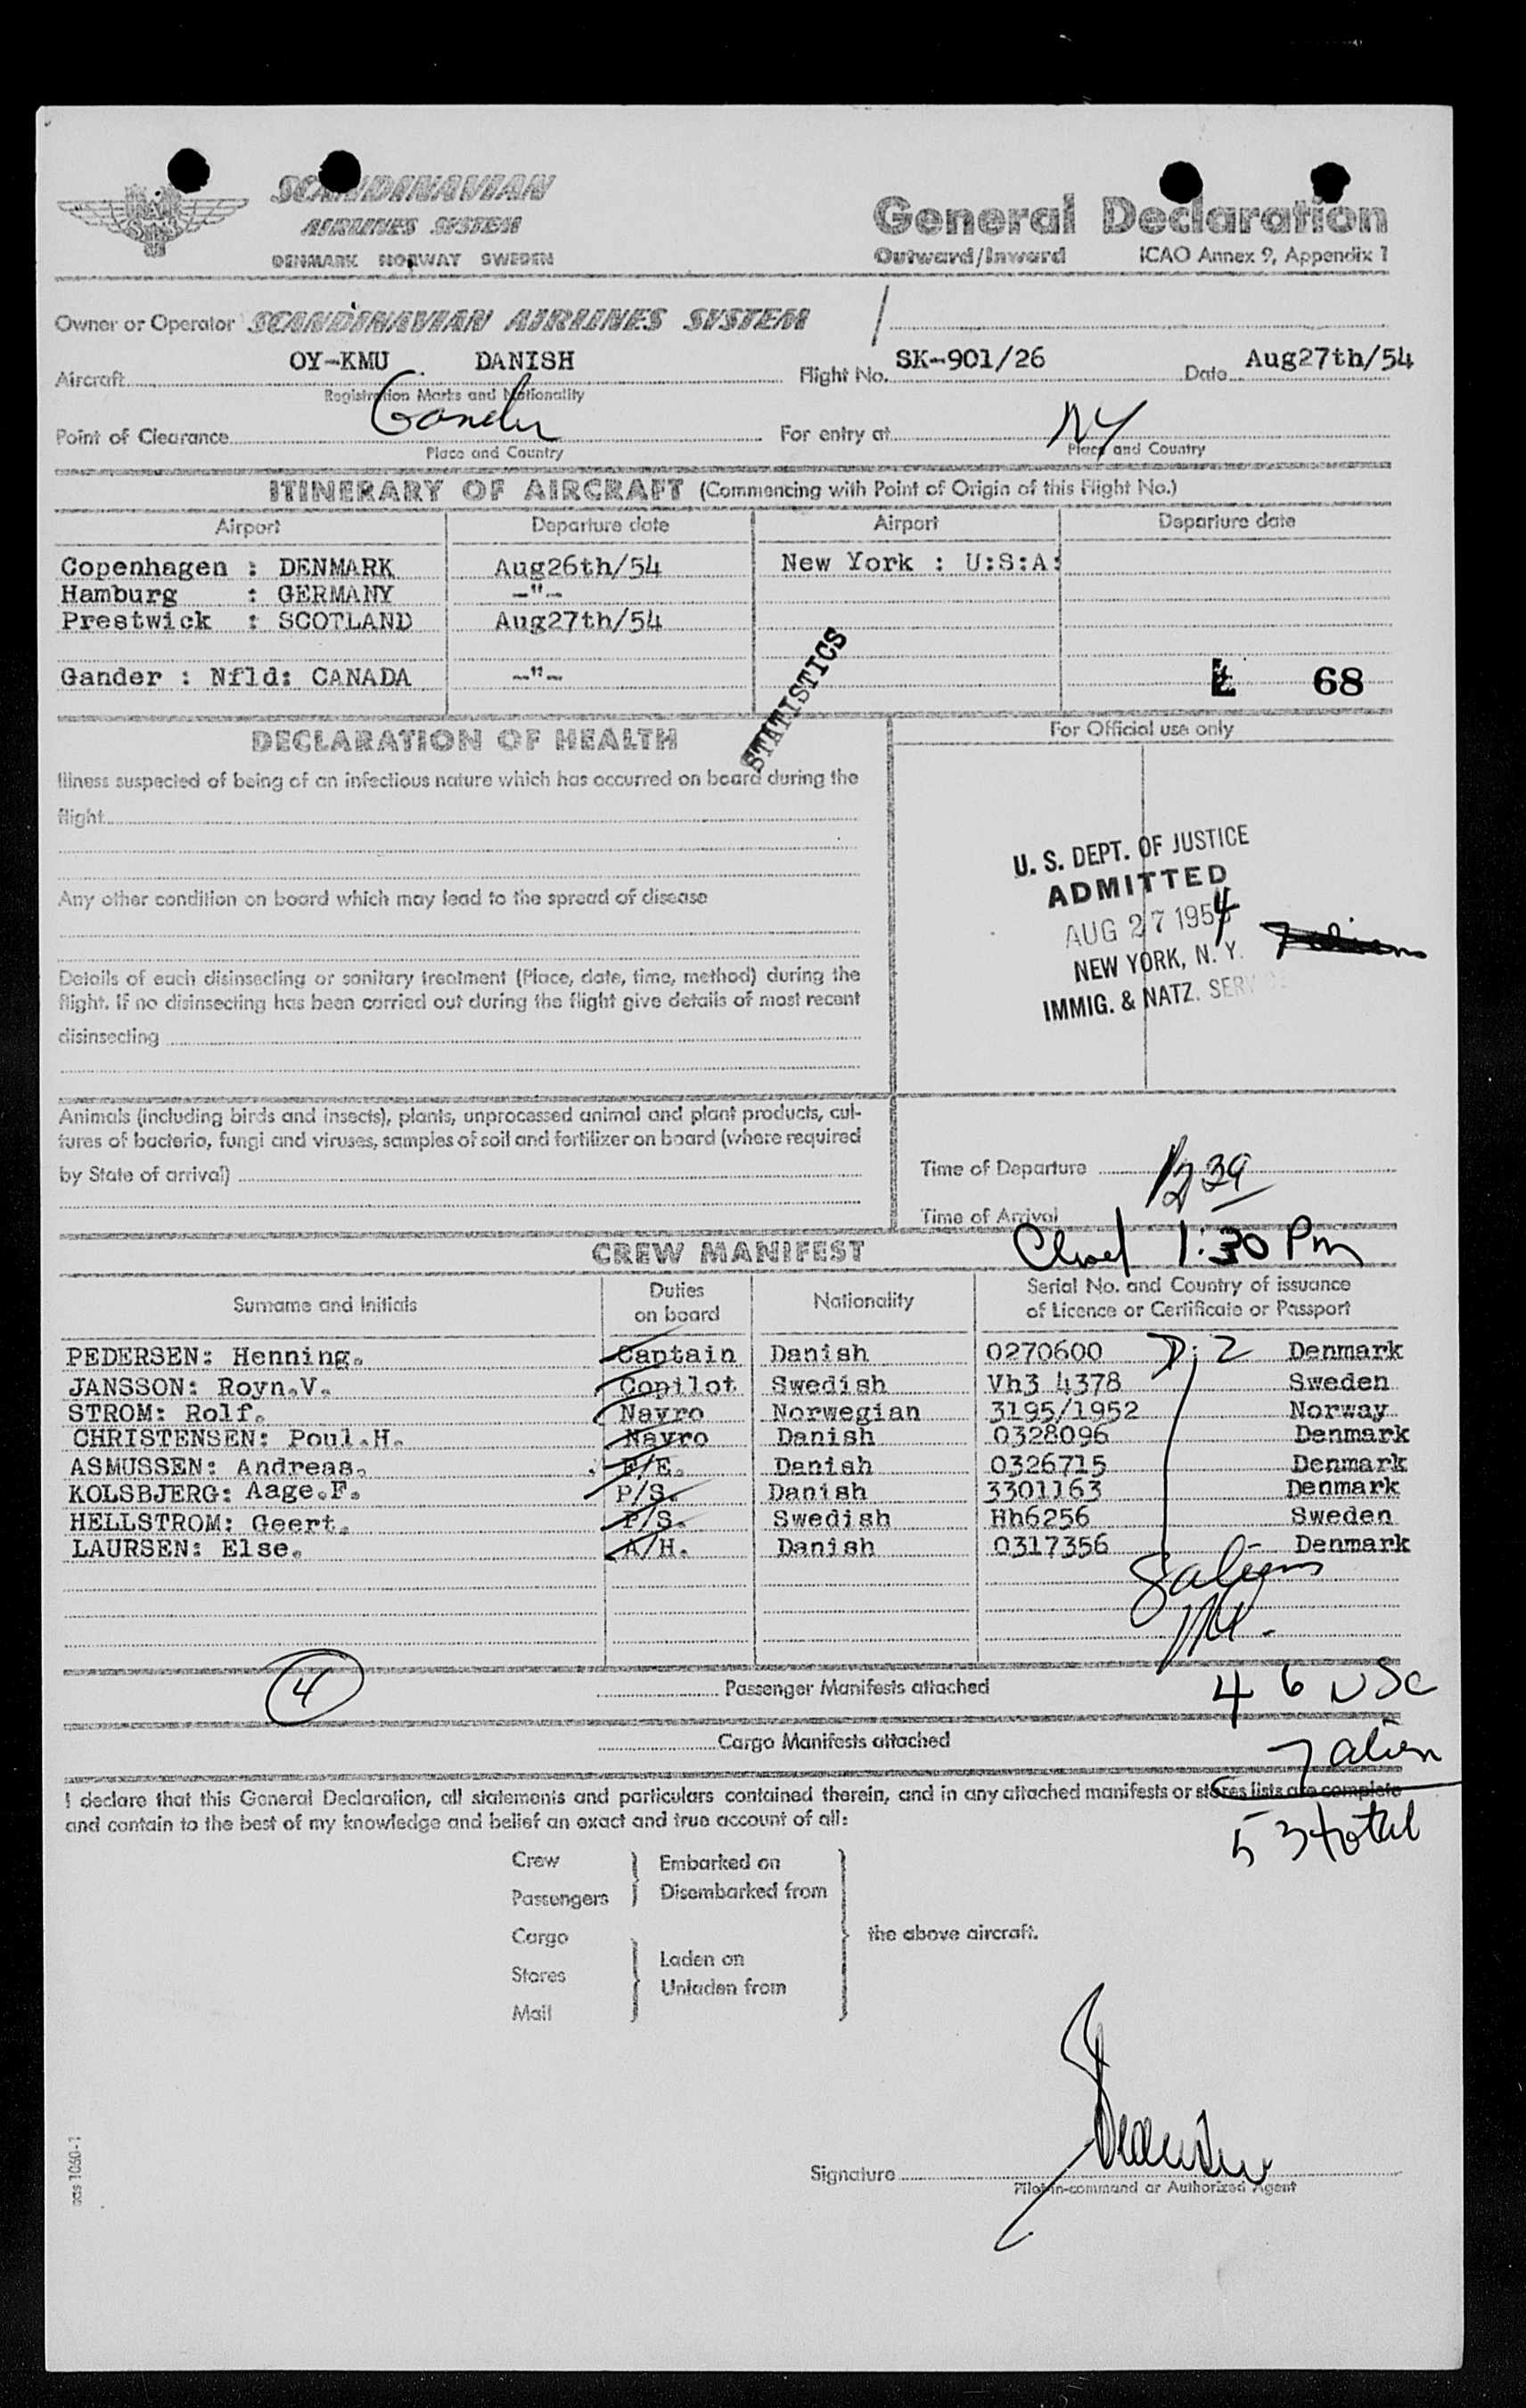 SCANDINAVIAN
AIRLINES SYSTEM
DENMARK NORWAY SWEDEN
General Declaration
Outward/Inward ICAO Annex 9, Appendix 1
Owner or Operator SCANDINAVIAN AIRLINES SYSTEM /
Aircraft OY-KMU DANISH Flight No. SK-901/26 Date Aug27th/54
Registration Marks and Nationality
Point of Clearance Gander For entry at NY
Place and Country Place and Country
ITINERARY OF AIRCRAFT (Commencing with Point of Origin of this Flight No.)
Airport Departure date Airport Departure date
Copenhagen : DENMARK Aug26th/54 New York : U:S:A:
Hamburg : GERMANY -"-
Prestwick : SCOTLAND Aug27th/54
Gander : Nfld: CANADA -"-
68
STATISTICS
DECLARATION OF HEALTH
For Official use only
Illness suspected of being of an infectious nature which has occurred on board during the
flight
Any other condition on board which may lead to the spread of disease
Details of each disinsecting or sanitary treatment (Place, date, time, method) during the
flight. If no disinsecting has been carried out during the flight give details of most recent
disinsecting
U. S. DEPT. OF JUSTICE
ADMITTED
AUG 27 1954
NEW YORK, N. Y.
IMMIG. & NATZ. SERVICE
Animals (including birds and insects), plants, unprocessed animal and plant products, cul-
tures of bacteria, fungi and viruses, samples of soil and fertilizer on board (where required
by State of arrival)
Time of Departure 1239
Time of Arrival
1:30 Pm
CREW MANIFEST
Surname and Initials Duties on board Nationality Serial No. and Country of issuance of Licence or Certificate or Passport
PEDERSEN: Henning. Captain Danish 0270600 D; 2 Denmark
JANSSON: Royn.V. Copilot Swedish Vh3 4378 Sweden
STROM: Rolf. Navro Norwegian 3195/1952 Norway
CHRISTENSEN: Poul.H. Navro Danish 0328096 Denmark
ASMUSSEN: Andreas. F/E. Danish 0326715 Denmark
KOLSBJERG: Aage.F. P/S. Danish 3301163 Denmark
HELLSTROM: Geert. P/S. Swedish Hh6256 Sweden
LAURSEN: Else. A/H. Danish 0317356 Denmark
8 aliens
4
Passenger Manifests attached
46 USC
Cargo Manifests attached
7 alien
I declare that this General Declaration, all statements and particulars contained therein, and in any attached manifests or stores lists are complete
and contain to the best of my knowledge and belief an exact and true account of all:
53 total
Crew Embarked on
Passengers Disembarked from
Cargo the above aircraft.
Laden on
Stores
Unladen from
Mail
Signature
Pilot-in-command or Authorized Agent
sas 1080-1